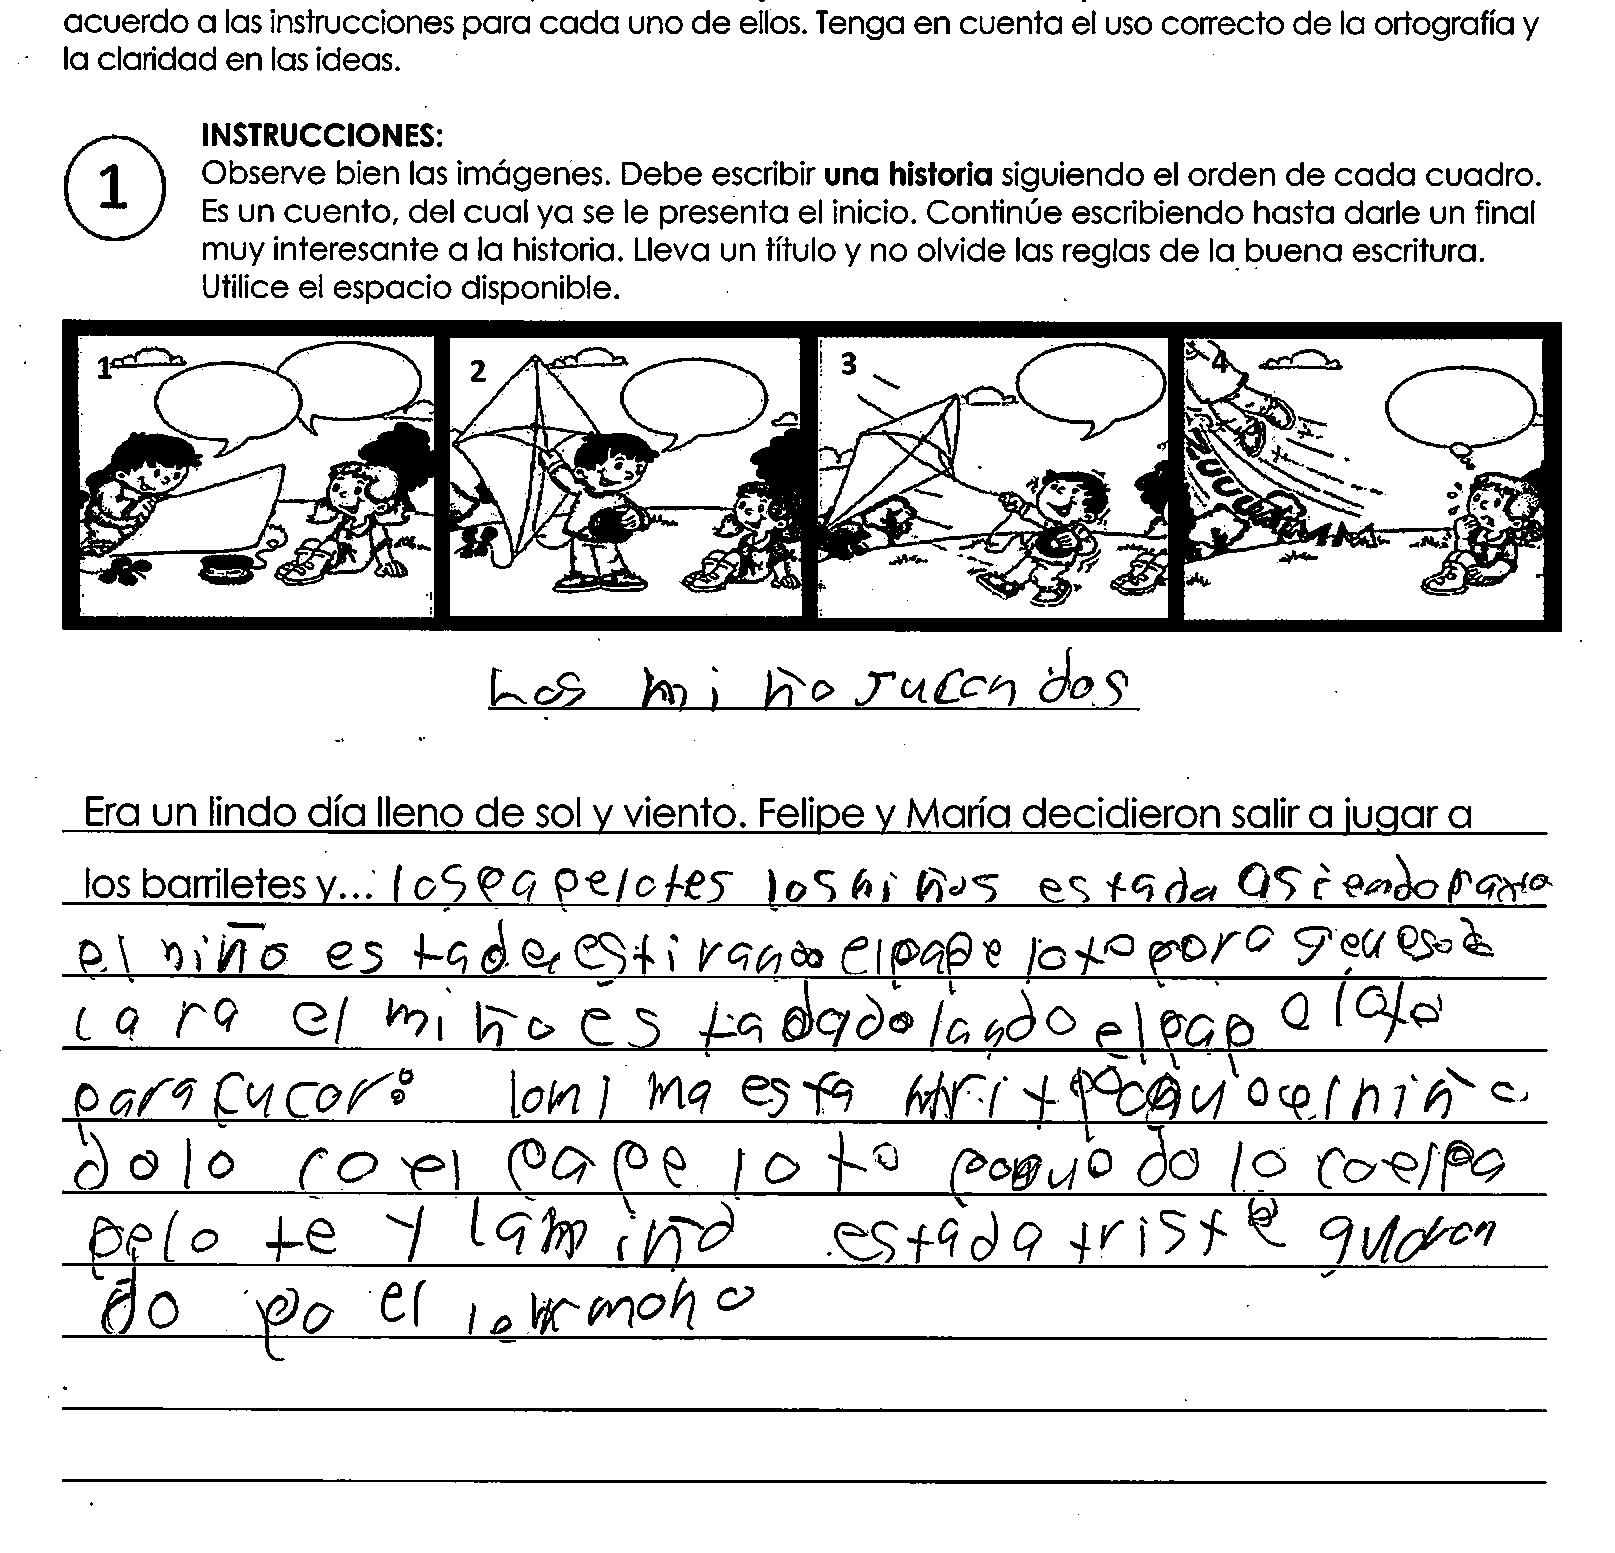 acuerdo a las instrucciones para cada uno de ellos. Tenga en cuenta el uso correcto de la ortografía y
la claridad en las ideas.
1
INSTRUCCIONES:
Observe bien las imágenes. Debe escribir una historia siguiendo el orden de cada cuadro.
Es un cuento, del cual ya se le presenta el inicio. Continúe escribiendo hasta darle un final
muy interesante a la historia. Lleva un título y no olvide las reglas de la buena escritura.
Utilice el espacio disponible.
1 2 3 4
Los mi ño jucan dos
Era un lindo día lleno de sol y viento. Felipe y María decidieron salir a jugar a
los barriletes y... los papelotes los niños estada asiendo
el niño es tada estirando el pape loto para
ca ra el mi ño es ta el pap e loto
para cucar: esta el niñ
dolo co el pape lo to do lo co el pa
pelo te y la miño estada triste
do po el